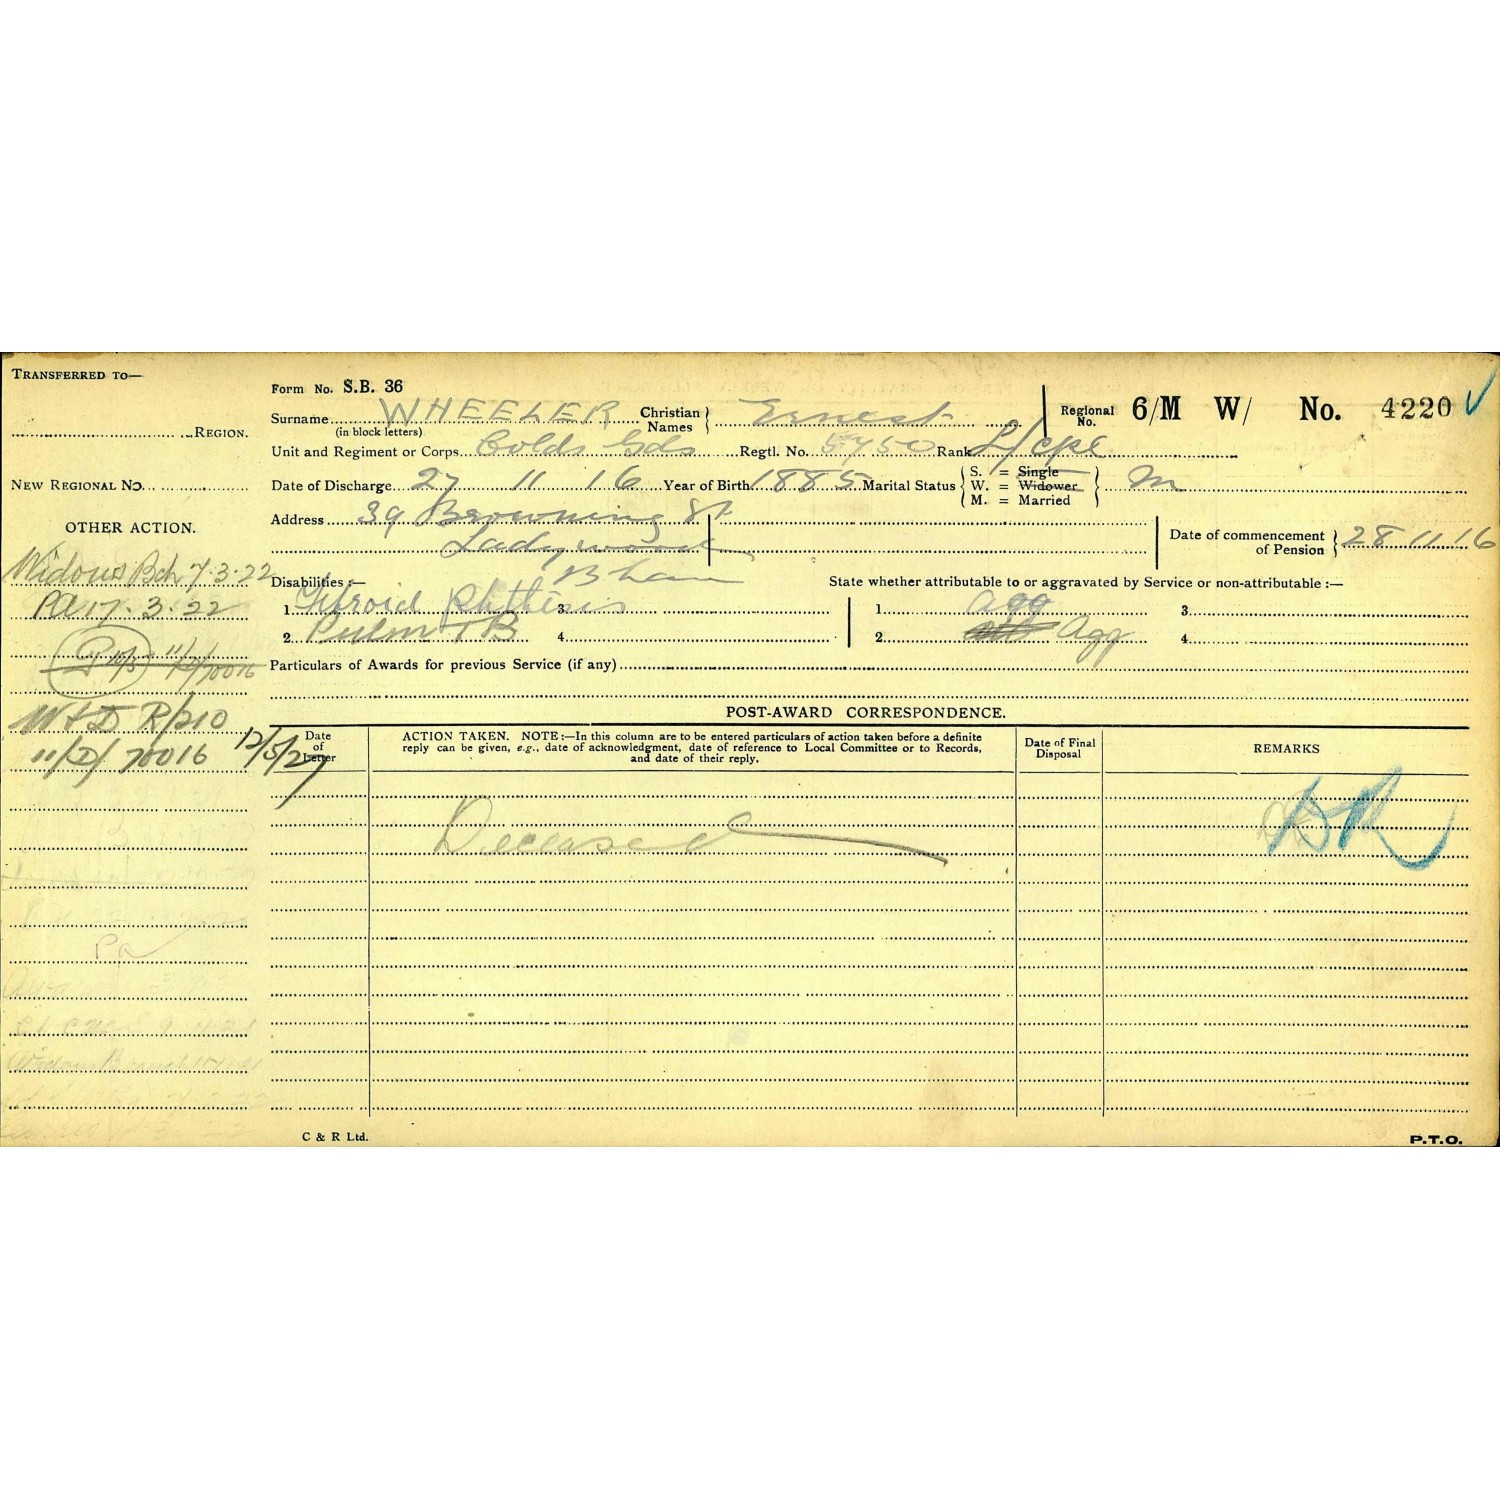 TRANSFERRED TO—
REGION.
NEW REGIONAL NO.
OTHER ACTION.
Widows Bch 7.3.22
PA 17.3.22
11/D/70016
W+D R/210
11/D/70016 12/5/27
Form No. S.B. 36
Surname WHEELER Christian Names Ernest Regional No. 6/M W/ No. 4220
(in block letters)
Unit and Regiment or Corps Colds Gds Regtl. No. 5750 Rank L/cpl
Date of Discharge 27 11 16 Year of Birth 1885 Marital Status S. = Single W. = Widower M. = Married M
Address 39 Browning St
Ladywood
Bham
Date of commencement of Pension 28 11 16
Disabilities :— State whether attributable to or aggravated by Service or non-attributable :—
1. Fibroid Phthisis 3. 1. agg 3.
2. Pulm TB 4. 2. Agg 4.
Particulars of Awards for previous Service (if any)
POST-AWARD CORRESPONDENCE.
Date of Letter
ACTION TAKEN. NOTE:—In this column are to be entered particulars of action taken before a definite
reply can be given, e.g., date of acknowledgment, date of reference to Local Committee or to Records,
and date of their reply.
Date of Final Disposal
REMARKS
Deceased
DR
Pa
C & R Ltd.
P.T.O.